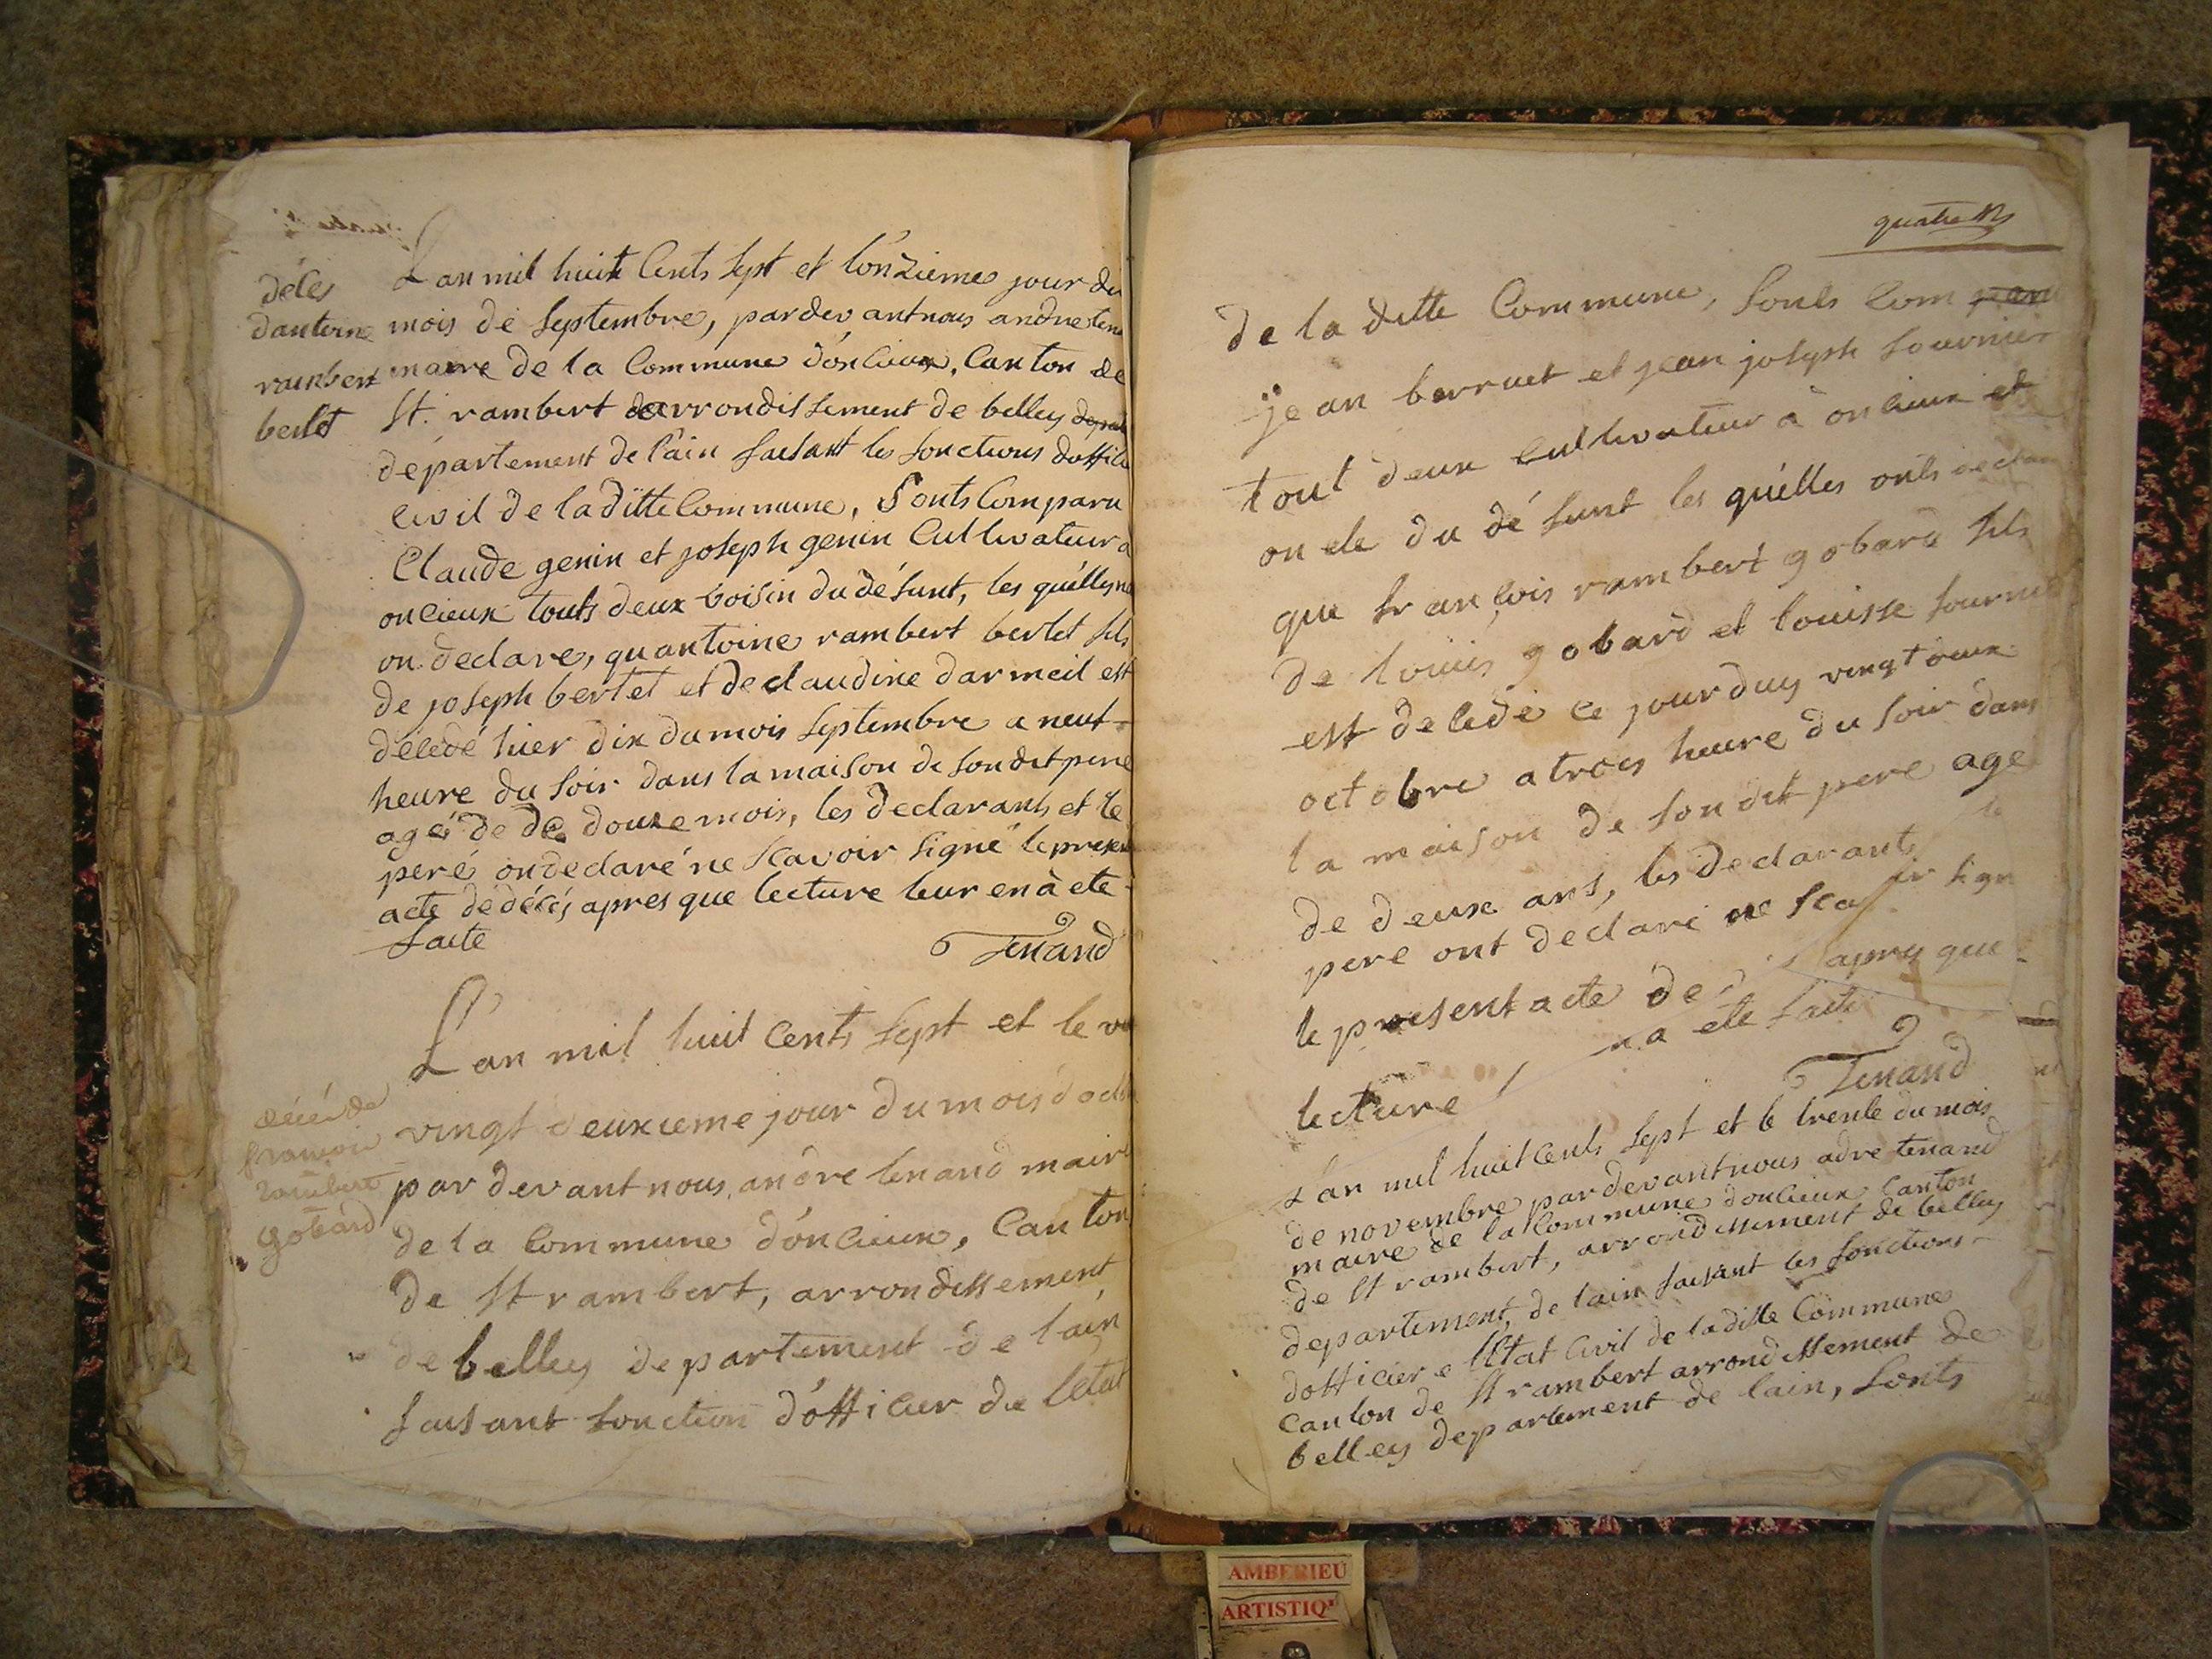 déles
dantoine
rambert
berlet
Lan mil huit Cents sept et lonzieme jour du
mois de septembre, pardevantnous andretena
maire de la Commune dónlieux, Canton de
St. rambert arrondissement de belley
département de l'ain faisant les fonctions doffici
Civil de laditte Commune, Sonts Comparu
Claude genin et joseph genin Cultivateur a
onlieux touts deux voisin du défunt, les quélles
on declare, quantoine rambert berlet fils
de joseph berlet et declaudine darmeil est
décedé hier dix dumois septembre a neuf
heure du soir dans la maison de sondit pere
agé de de douze mois, les declarants et le
peré ondeclaré ne scavoir signé le present
acte dédécés apres que lecture leur en à ete
faite
Tenand
décés de
francois
rambert
gobard
Lan mil huit Cents sept et le
vingt deuxieme jour du mois d'octob
par devant nous, andre tenand maire
de la Commune dónlieux, Canton
de St rambert, arrondissement
de belley departement de lain
faisant fonction dófficier de létat
quatre
de la ditte Commune, Sonts Com
jean berruet et jean joseph fournier
tout deux cultivateur à onlieux et
oncle du défunt les quélles onts declar
que françois rambert gobard fils
de louis gobard et louisse fournie
est decedé ce jourduy vingt deux
octobre a trois heure du soir dans
la maison de son dit pere age
de deux ans, les declarants le
pere ont declaré ne sca ir sign
le present acte de apres que
lecture a ete faite
Tenand
Lan mil huit Cents sept et le trente du mois
de novembre pardevantnous adre tenand
maire de la Commune donlieux Canton
de St rambert, arrondissement de belley
departement, de lain faisant les fonctions
dofficier e létat Civil de laditte Commune
Canton de St rambert arrondissement de
belley departement de lain, Sonts
AMBERIEU
ARTISTIQ